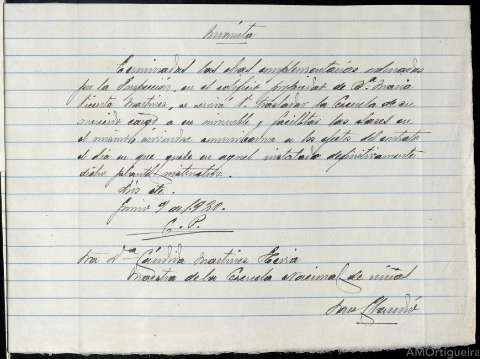 Minuta
Terminadas las obras complementarias ordenadas
por la Inspección, en el edificio propiedad de D.ª Maria
Vicenta Martinez, se servirá V. trasladar la Escuela de su
merecido cargo a su inmueble y facilitar las claves en
el mismo comunicarme a los efectos del contrato
el dia en que quede en aquel instalado definitivamente
dicho plantel
Dios etc.
Junio 9 de 1920.
C. P.
Sra. D.ª Cándida Martinez
Maestra de la Escuela Nacional de niñas
AMOrtigueira